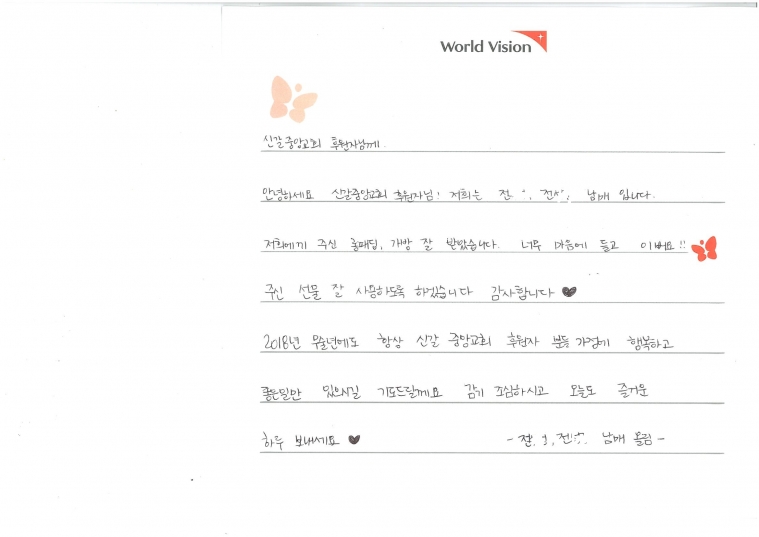 World Vision
신갈중앙교회 후원자님께.
안녕하세요 신갈중앙교회 후원자님! 저희는 전 , 전 , 남매 입니다.
저희에게 주신 롱패딩, 가방 잘 받았습니다. 너무 마음에 들고 이뻐요!!
주신 선물 잘 사용하도록 하겠습니다 감사합니다 ♥
2018년 무술년에도 항상 신갈 중앙교회 후원자 분들 가정에 행복하고
좋은일만 있으시길 기도드릴게요 감기 조심하시고 오늘도 즐거운
하루 보내세요 ♥
- 전 , 전 , 남매 올림 -